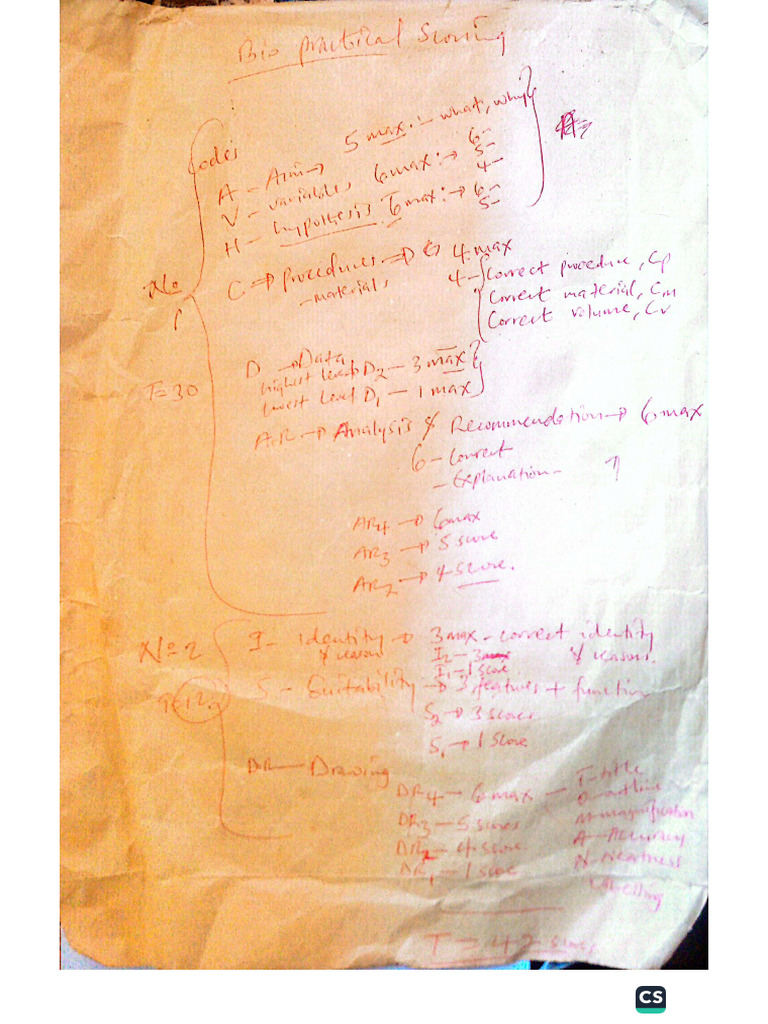 Bio practical Scoring
Codes
A - Aim → 5 max :- what, why
V - variables 6 max : → 6-
5-
4-
H - hypothesis 6 max : → 6-
5-
No 1
C ⇒ procedures → 4 max
- materials
4 - Correct procedure, Cp
Correct material, Cm
Correct volume, Cv
T = 30
D → Data
highest level D2 - 3 max
lowest level D1 - 1 max
A&R → Analysis & Recommendation → 6 max
6 - Correct
- Explanation - ↑
AR4 → 6 max
AR3 → 5 score
AR2 → 4 score.
No 2
I - identity → 3 max - correct identity
& reason I2 - 3 max & reason.
I1 - 1 score
T = 12
S - Suitability → 3 features + function
S2 → 3 scores
S1 → 1 score
DR - Drawing
DR4 - 6 max - T - title
O - outline
DR3 - 5 scores M - magnification
DR2 - 4 score A - Accuracy
DR1 - 1 score N - neatness
Labelling
T = 42 scores
CS